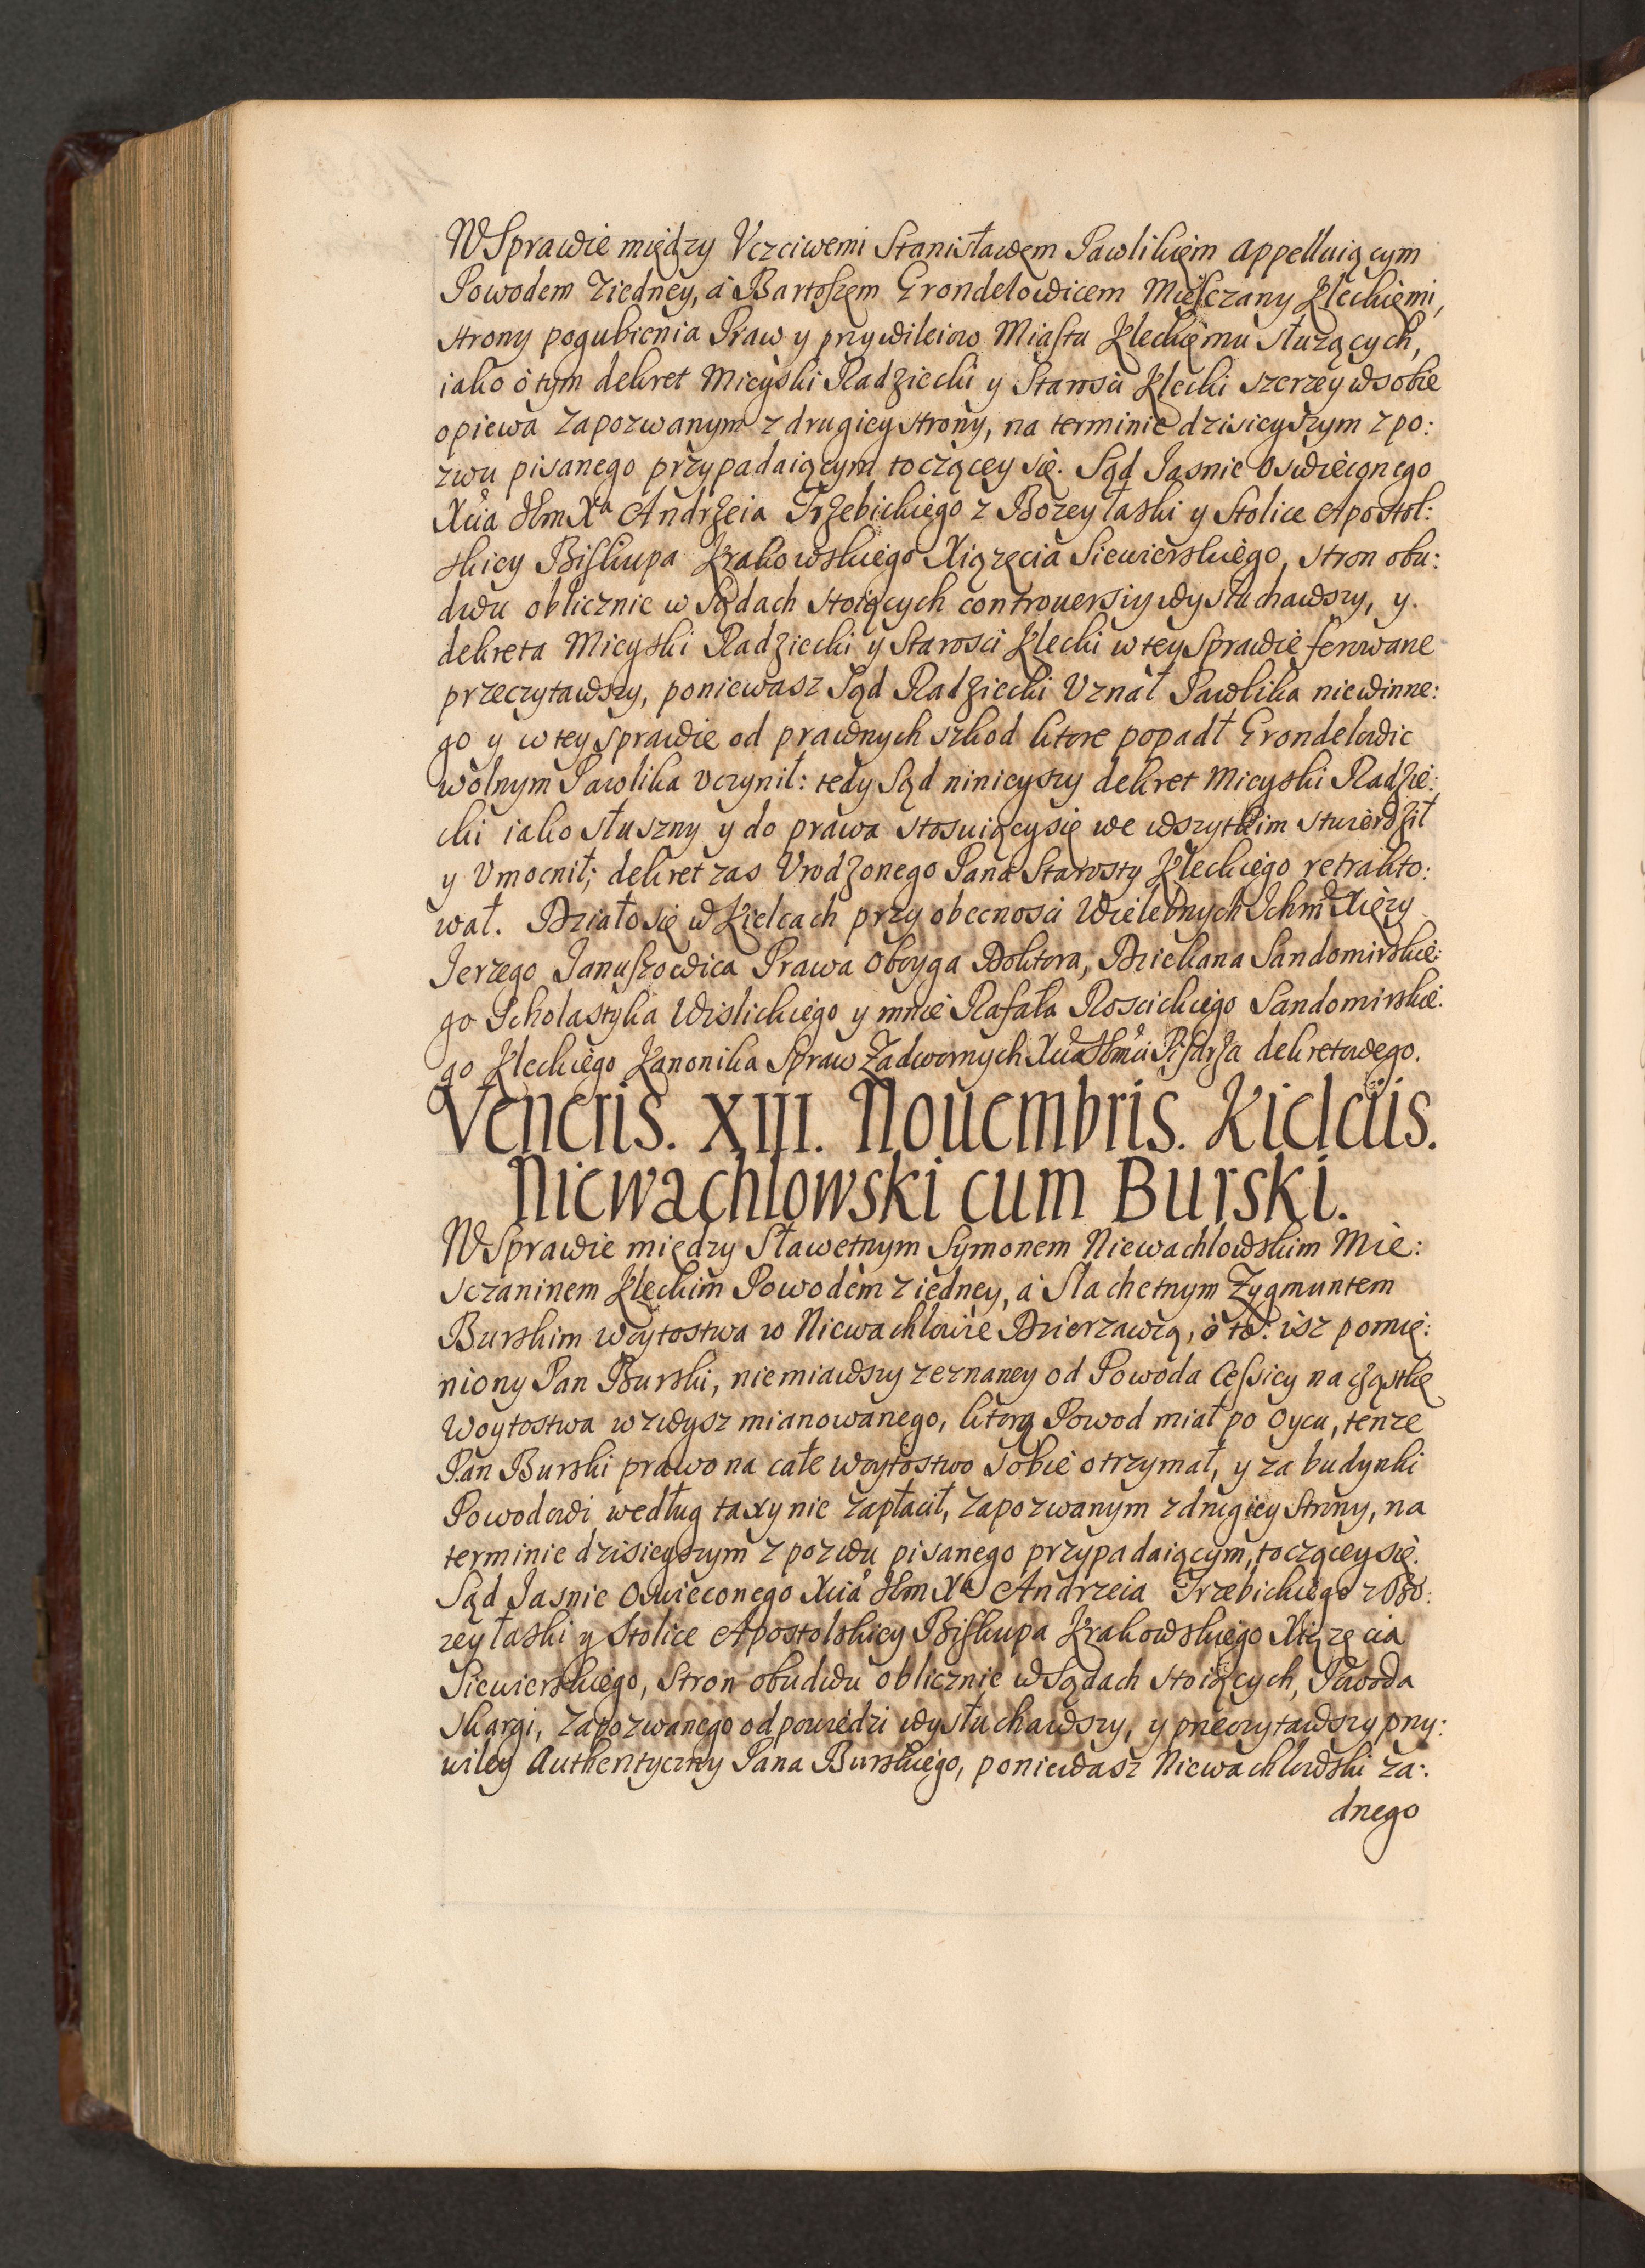 W Sprawie między Vczciwemi Stanisławem Pawlikiem appelluiącym
Powodem z iedney, á Bartoszem Grondelowicem Miesczany Kieckiemi,
strony pogubienia Praw y przywileiow Miastu Kieckiemu słuzących,
iako ó tym dekret Mieyski Radziecki y Starosci Kiecki szerzey w sobie
opiewa Zapozwanym z drugiey strony, na terminie dzisieyszym z po:
zwu pisanego przypadaiącym toczącey się. Sąd Jasnie Oswieconego
Xcia JImXa Andrzeia Trzebickiego z Bozey łaski y Stolice Apostol:
skiey Biskupa Krakowskiego Xiązęcia Siewierskiego, stron obu:
dwu oblicznie w Sądach stoiących controuersiy wysłuchawszy, y.
dekreta Mieyski Radziecki y Starosci Kiecki w tey Sprawie ferowane
przeczytawszy, poniewasz Sąd Radziecki Vznał Pawlika niewinne:
go y w tey sprawie od prawnych szkod ktore popadł Grondelowic
wolnym Pawlika vczynił: tedy Sąd ninieyszy dekret Mieyski Radzie:
cki iako słuszny y do prawa stosuiący się we wszytkim stwierdził
y Vmocnił; dekret zas Vrodzonego Pana Starosty Kieckiego retrakto:
wał. Działo się w Kielcach przy obecnosci Wielebnych Ichm Xięzy
Jerzego Januszowica Prawa oboyga Doktora, Dziekana Sandomirskie:
go Scholastyka Wislickiego y mnie Rafała Roscickiego Sandomirskie:
go Kieckiego Kanonika Spraw Zadwornych Xcia JImci Pisarza dekretowego.
Veneris. XIII. Nouembris. Kielciis.
Niewachlowski cum Burski.
W Sprawie między Sławetnym Symonem Niewachlowskim Mie:
sczaninem Kieckim Powodem z iedney, á Slachetnym Zygmuntem
Burskim woytostwa w Niewachlowie Dzierzawcą, ó to: isz pomie:
niony Pan Burski, niemiawszy zeznaney od Powoda Cessiey na cząstkę
Woytostwa wzwysz mianowanego, ktorą Powod miał po oycu, tenze
Pan Burski prawo na całe woytostwo sobie otrzymał, y za budynki
Powodowi według taxy nie zapłacił, Zapozwanym z drugiey strony, na
terminie dzisieyszym z pozwu pisanego przypadaiącym, toczącey się.
Sąd Jasnie Oswieconego Xcia JImXa Andrzeia Trzebickiego z Bo:
zey łaski y Stolice Apostolskiey Biskupa Krakowskiego Xiązęcia
Siewierskiego, Stron obudwu oblicznie w Sądach stoiących, Powoda
skargi, Zapozwanego odpowiedzi wysłuchawszy, y przeczytawszy przy:
wiley Authentyczny Pana Burskiego, poniewasz Niewachlowski za:
dnego